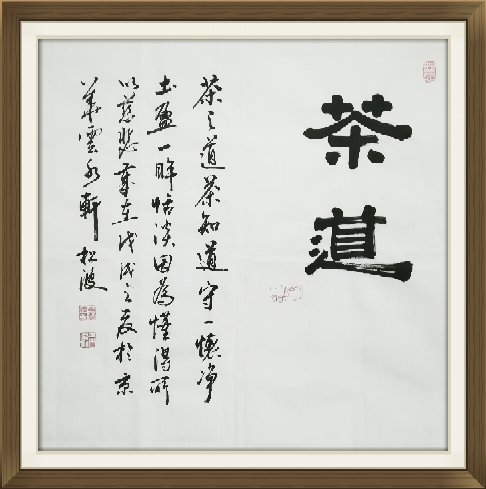 茶道
茶之道茶知道守一懷净
土盈一眸恬淡因為懂得所
以慈悲歲在戊戌之夏於京
華雲水軒 松波